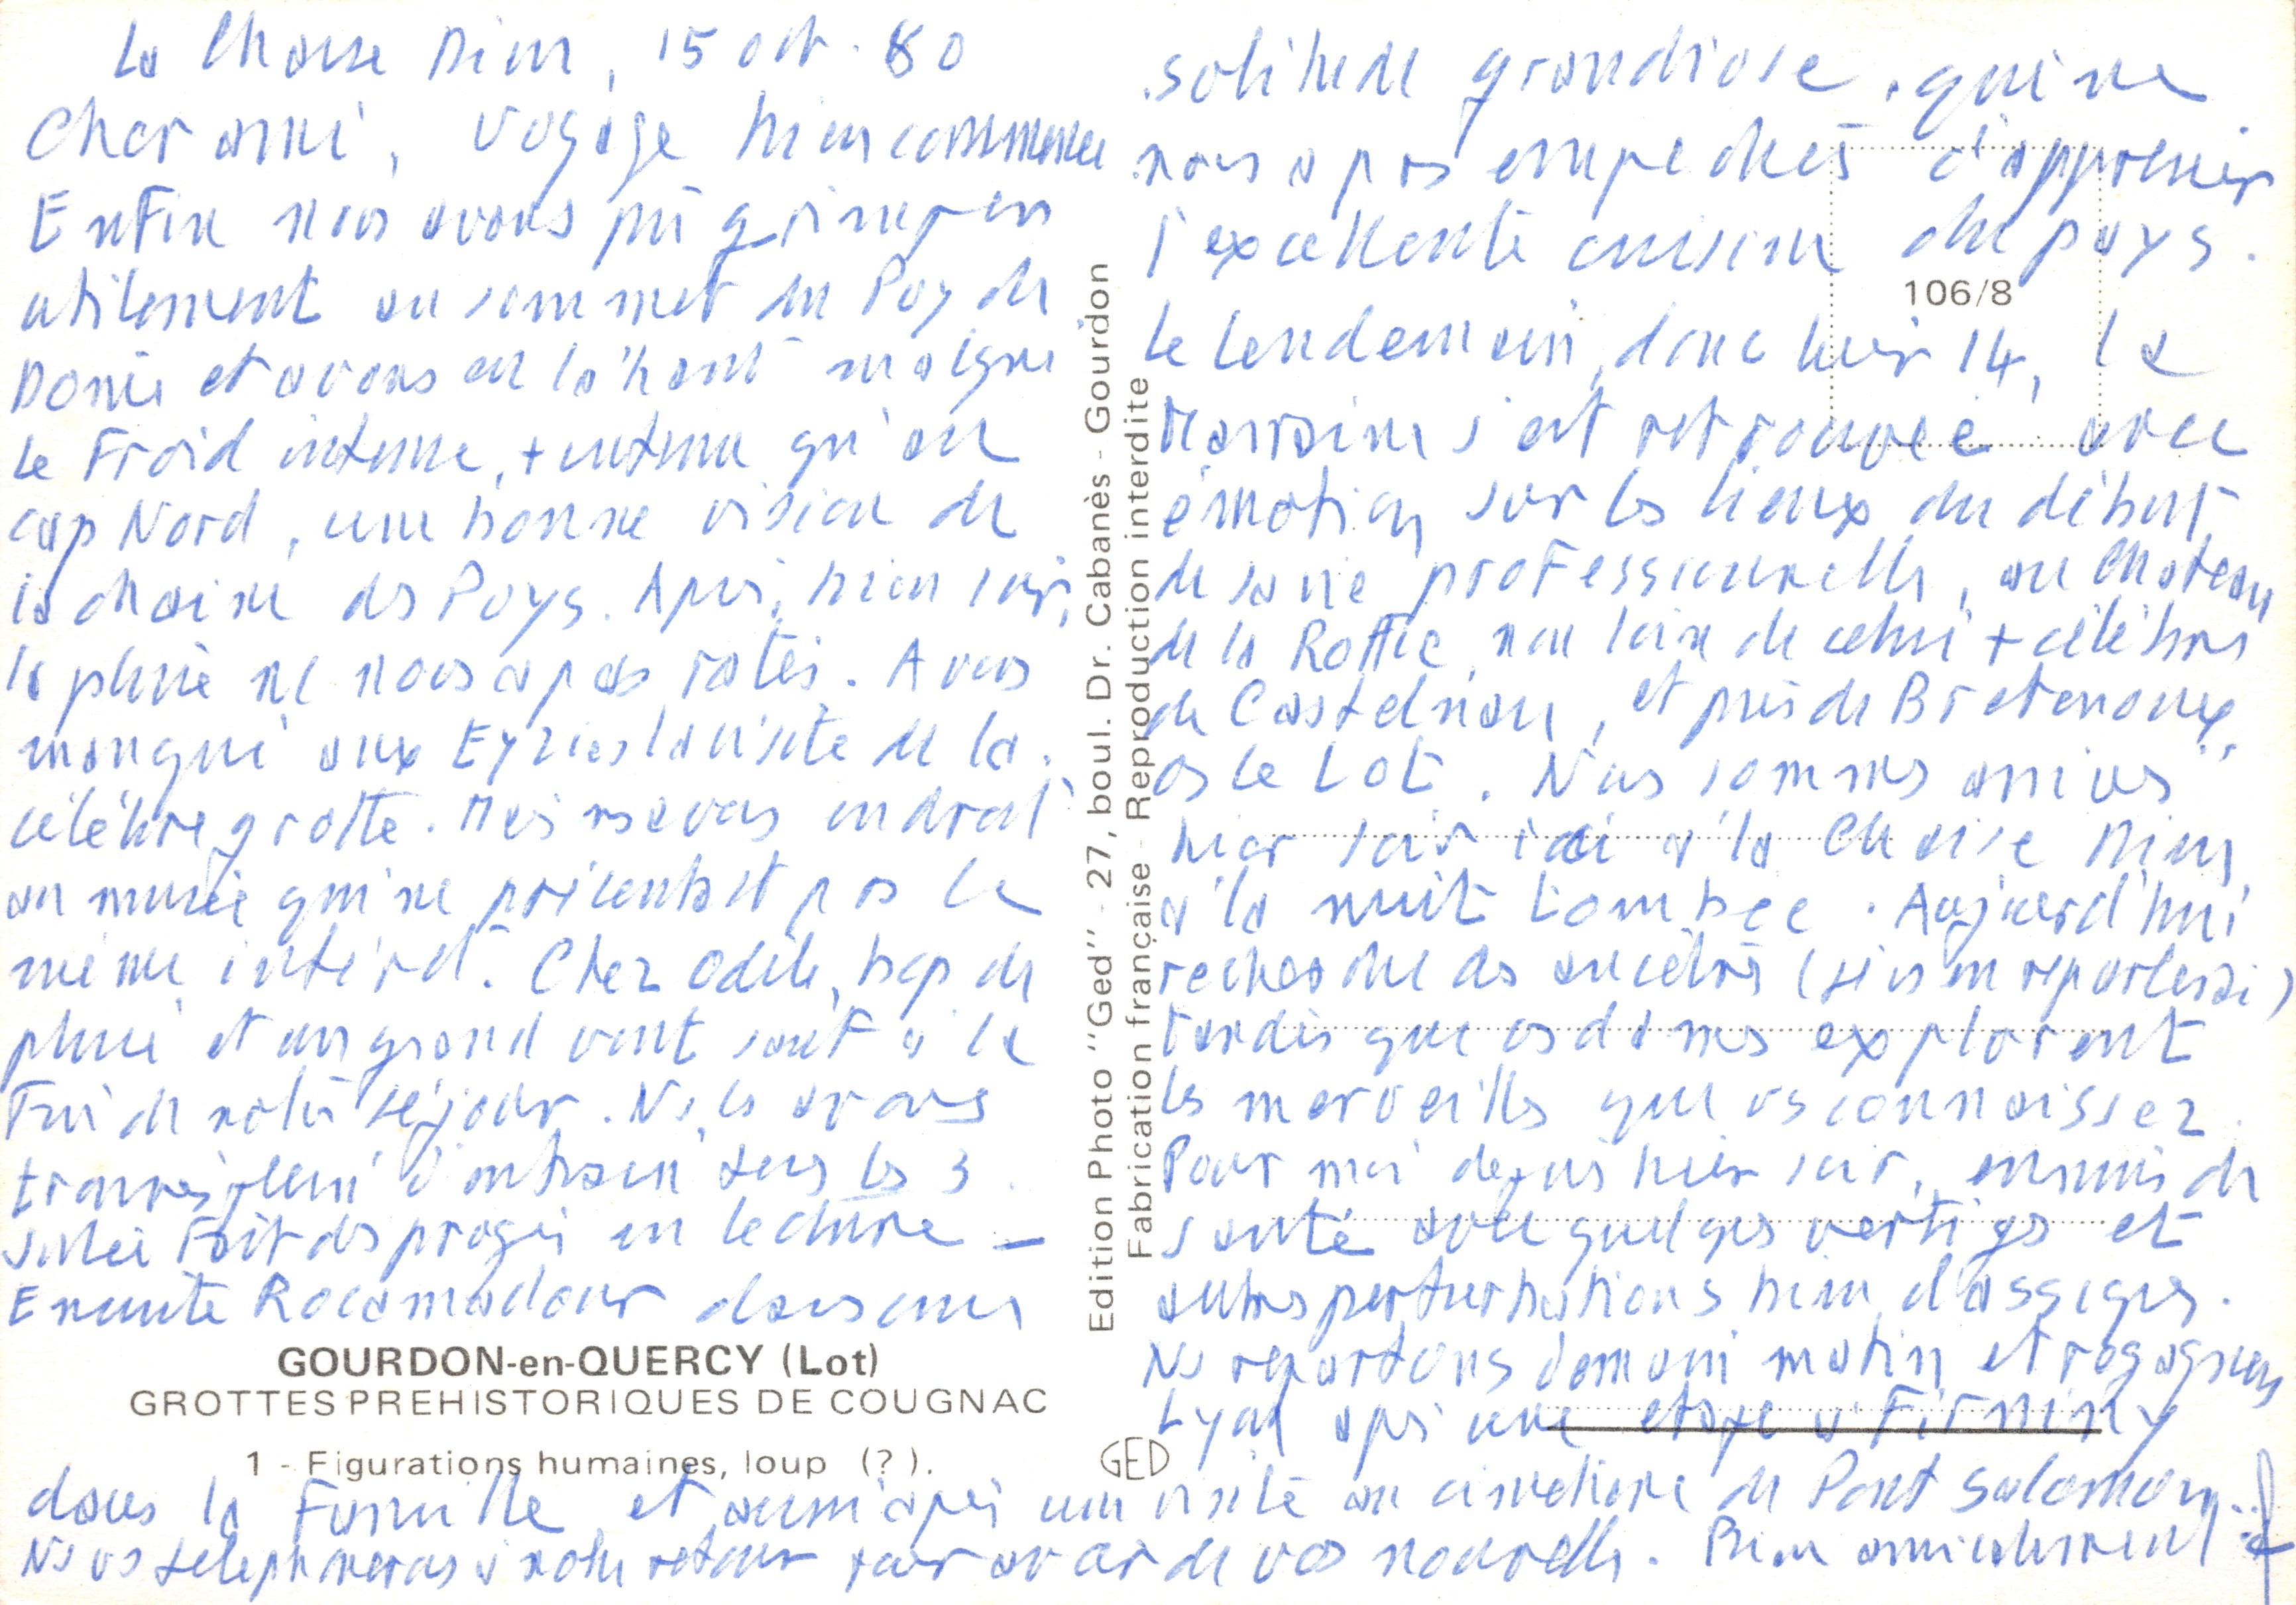 La Chaise Dieu, 15 oct. 80
Cher ami, Voyage bien commencé
Enfin nous avons pû grimper
utilement au sommet du Puy de
Dôme et avons eu là haut malgré
le Froid intense, + intense qu'au
cap Nord, une bonne vision de
la chaine des Puys. Après, bien sûr,
la pluie ne nous a pas ratés. Avons
manqué aux Eyzies la visite de la
célèbre grotte. Mais avons
au musée qui ne présentait pas le
même intérêt. Chez Odile, bcp de
pluie et un grand vent sauf à la
Fin de notre séjour. Ns les avons
trouvés plein d'entrain tous les 3.
Julie Fait des progrès en lecture _
Ensuite Rocamadour dans une
solitude grandiose, qui ne
nous a pas empêchés d'apprécier
l'excellente cuisine du pays.
Le lendemain, donc hier 14, la
Marraine s'est retrouvée avec
émotion sur les lieux du début
de sa vie professionnelle, au Chateau
de la non loin de celui + célèbre
de Castelnau, et près de Bretenoux,
ds le Lot. Nous sommes arrivés
hier soir ici à la Chaise Dieu,
à la nuit tombée. Aujourd'hui
recherche des ancêtres (je vs en reparlerai)
tandis que ces dames explorent
les merveilles que vs connaissez.
Pour moi depuis hier soir, ennuis de
santé avec quelques vertiges et
autres perturbations bien
Ns repartons demain matin et regagnons
Lyon après une étape à Firminy
dans la Famille et aussi après une visite au cimetière de Pont Salomon.
Ns vs téléphonerons à notre retour pour avoir de vos nouvelles. Bien amicalement
GOURDON-en-QUERCY (Lot)
GROTTES PREHISTORIQUES DE COUGNAC
1 - Figurations humaines, loup (?).
Edition Photo "Ged" - 27, boul. Dr. Cabanès - Gourdon
Fabrication française - Reproduction interdite
106/8
GED